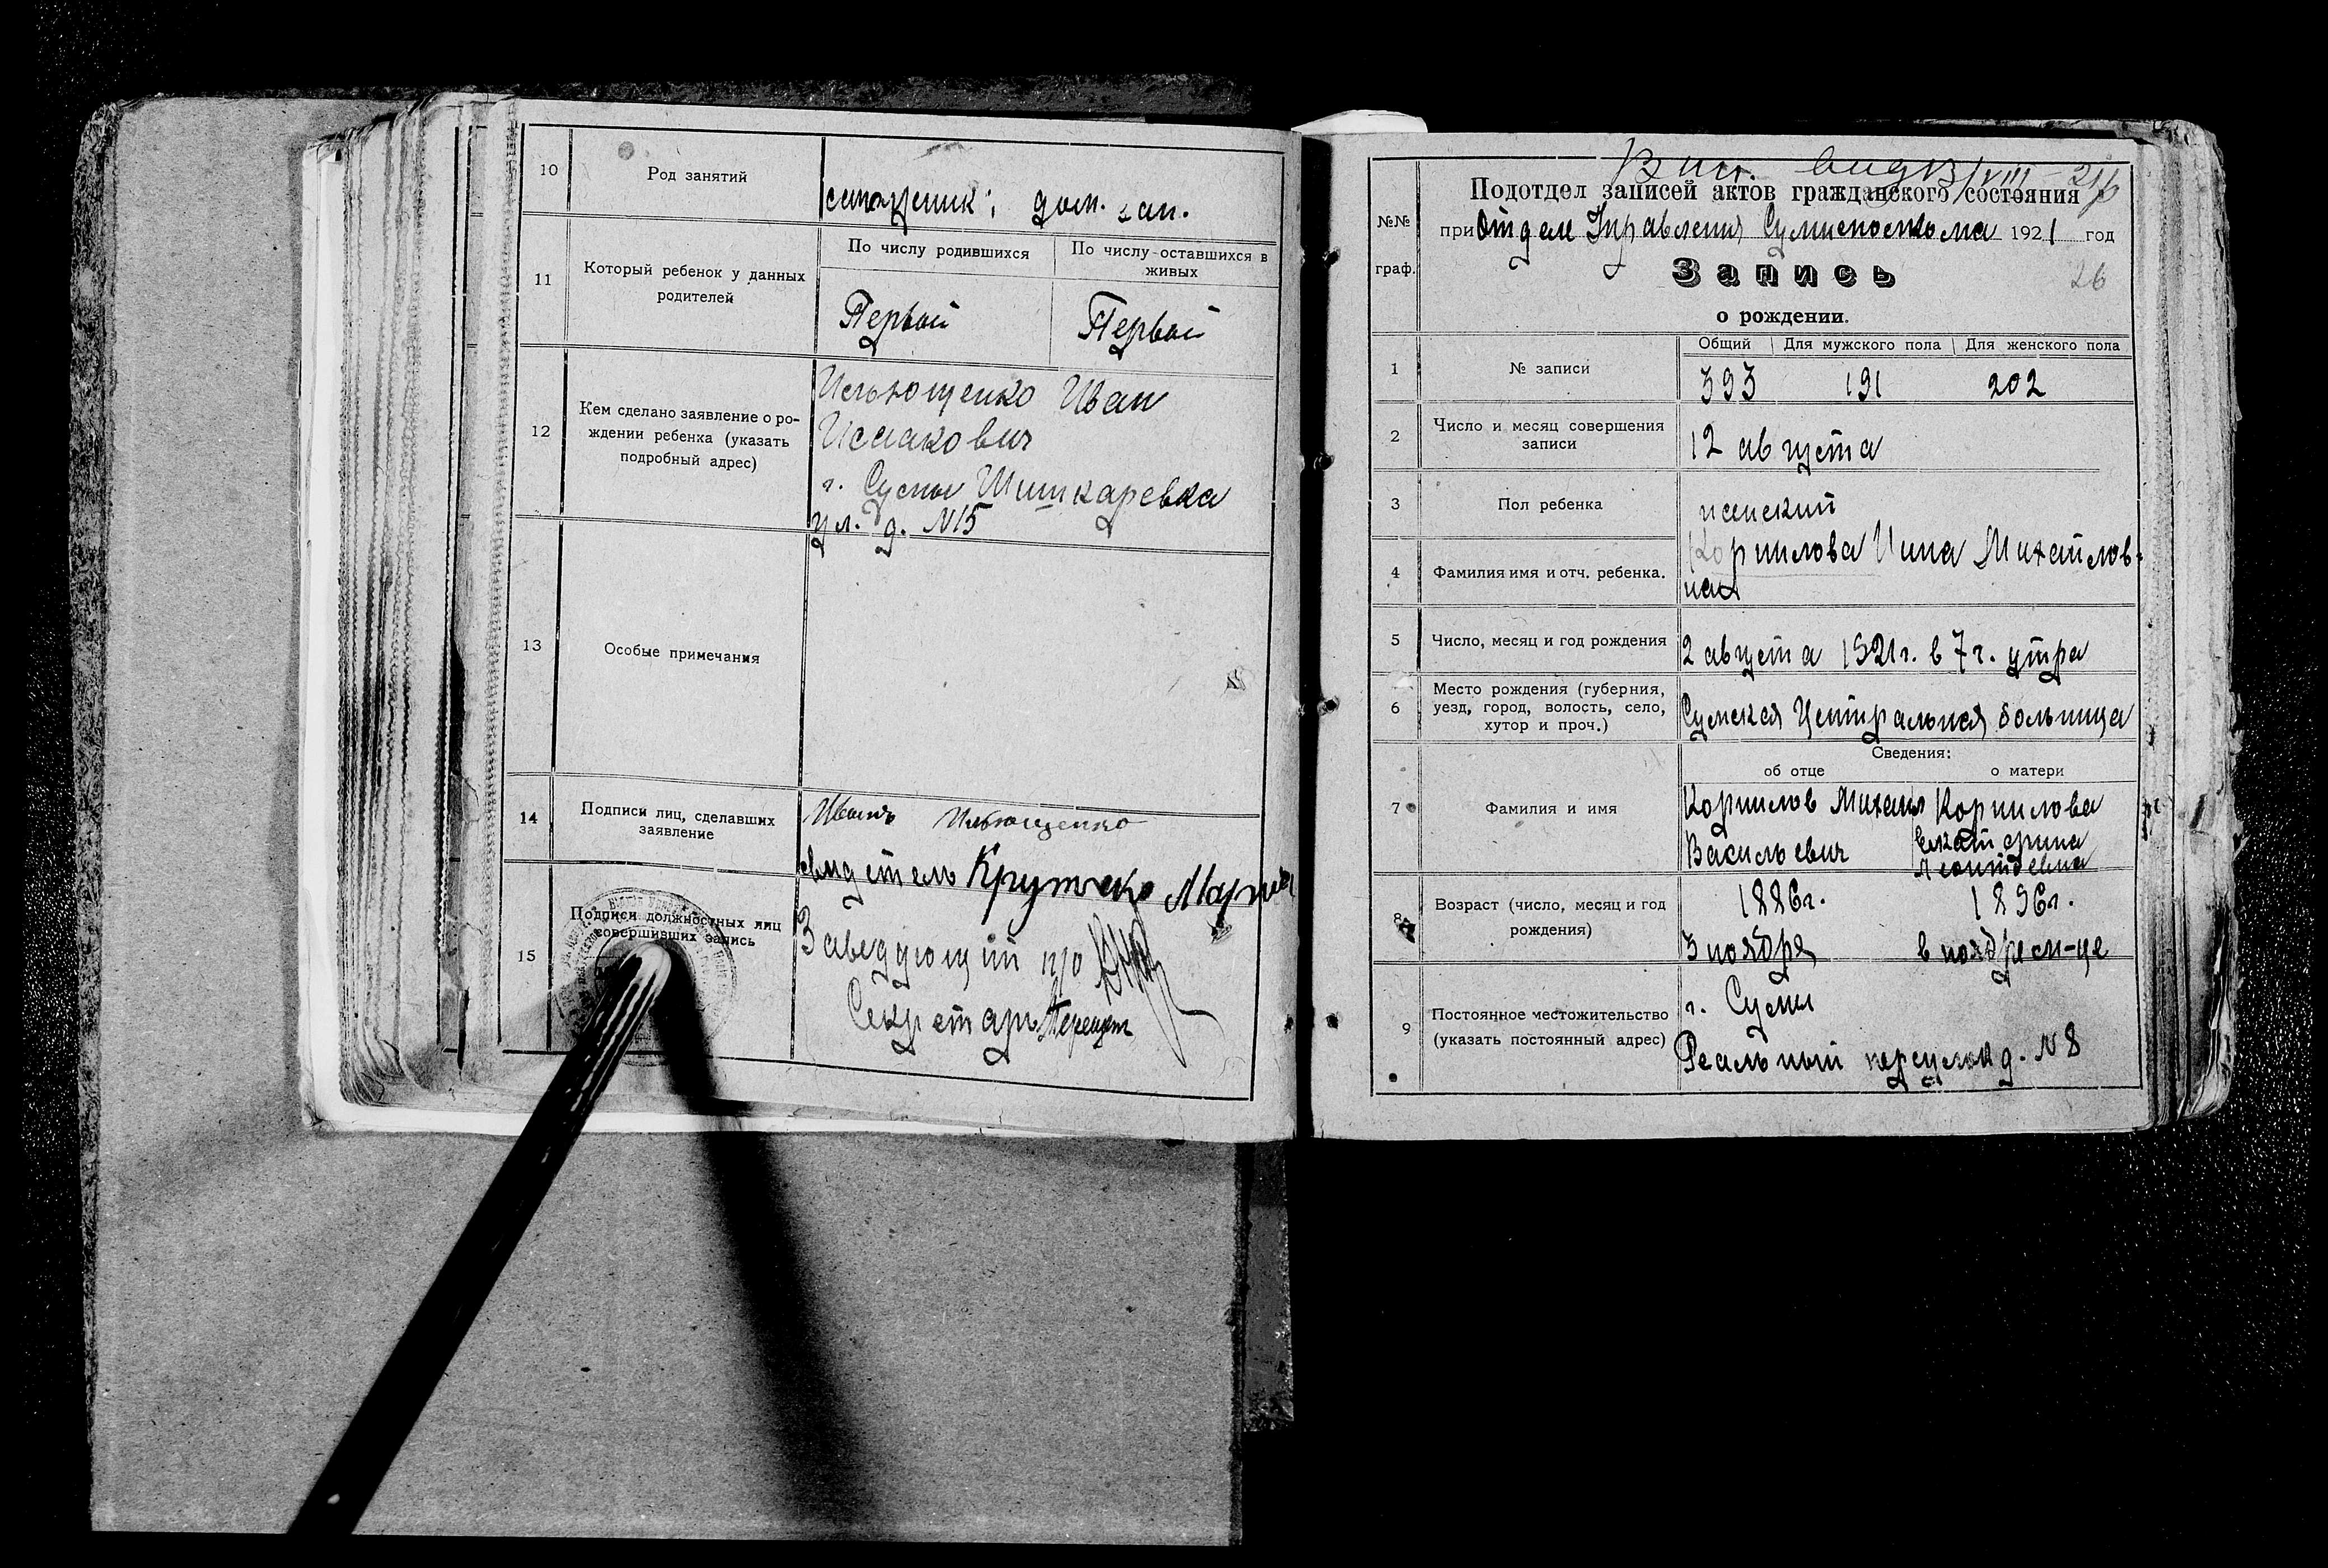 10
Род занятий
дом. зан.
11
Который ребенок у данных
родителей
По числу родившихся
По числу оставшихся в
живых
Первый
Первый
12
Кем сделано заявление о ро-
ждении ребенка (указать
подробный адрес)
Ильющенко Иван
Исаакович
г. Сумы Шишкаревка
ул. д. N15
13
Особые примечания
14
Подписи лиц, сделавших
заявление
Иванъ Ильющенко
свидетель Крутько Мария
15
Подписи должностных лиц
совершивших запись
Заведующий п/о
Секретарь
Вып.
Подотдел записей актов гражданского состояния
№№
граф.
при Отделе Управления Сумисполкома 1921 год
Запись
26
о рождении.
1
№ записи
Общий
Для мужского пола
Для женского пола
393
191
202
2
Число и месяц совершения
записи
12 августа
3
Пол ребенка
женский
4
Фамилия имя и отч. ребенка.
Корнилова Нина Михайлов-
на
5
Число, месяц и год рождения
2 августа 1921г. в 7 ч. утра
6
Место рождения (губерния,
уезд, город, волость, село,
хутор и проч.)
Сумская Центральная больница
Сведения:
об отце
о матери
7
Фамилия и имя
Корнилов Михаил
Васильевич
Корнилова
Екатерина
Леонтьевна
8
Возраст (число, месяц и год
рождения)
1886г.
3 ноября
1896г.
в ноябре м-це
9
Постоянное местожительство
(указать постоянный адрес)
г. Сумы
Реальный переулок д. N 8